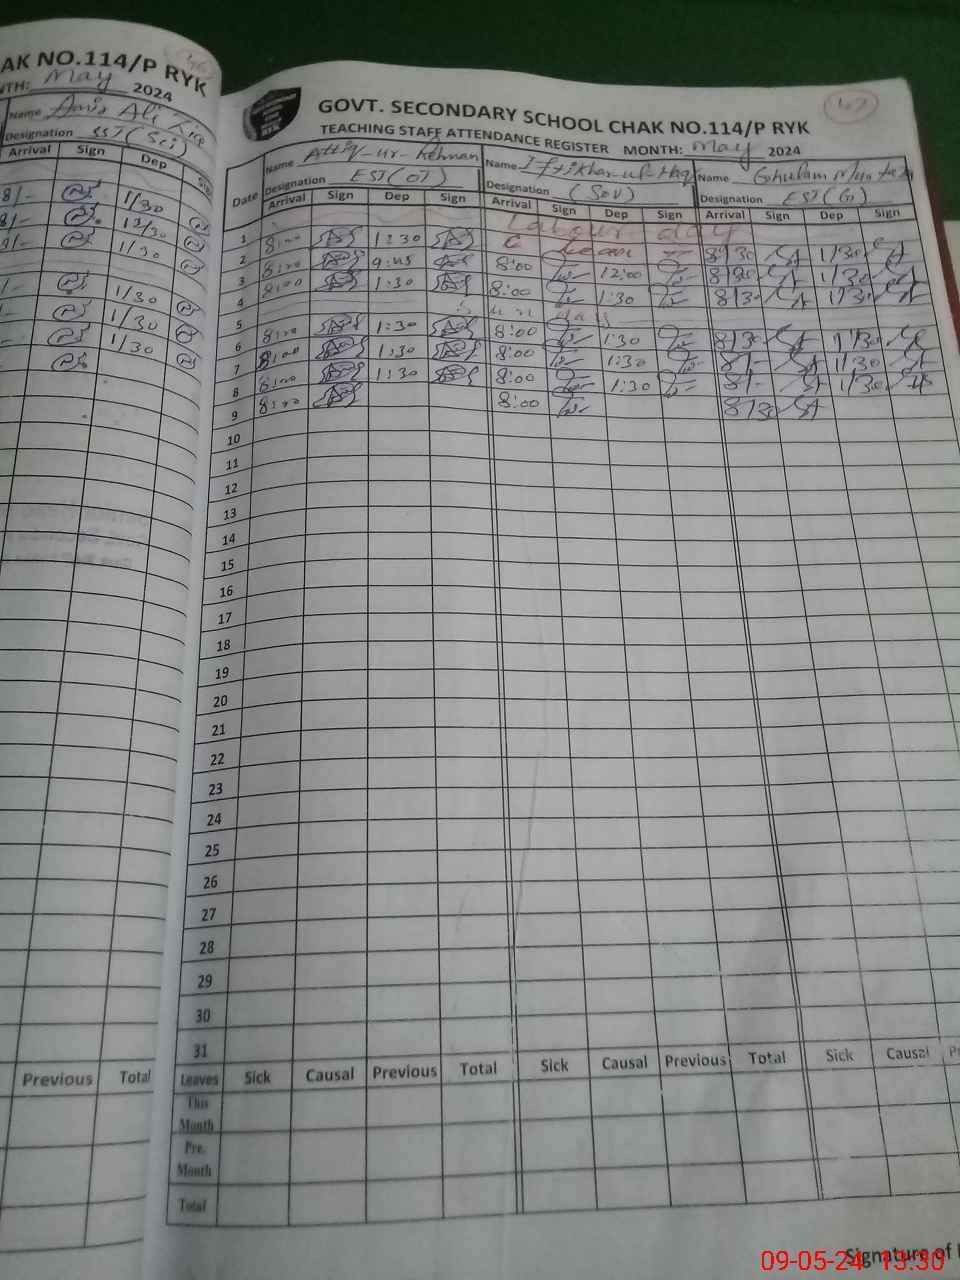 AK NO.114/P RYK
NTH: May 2024
Name Amir Ali
Designation SST (Sci)
Arrival Sign Dep
8/- 1/30
8/- 12/30
1/30
1/30
1/30
1/30
Previous Total
GOVT. SECONDARY SCHOOL CHAK NO.114/P RYK
TEACHING STAFF ATTENDANCE REGISTER MONTH: May 2024
Date Name Attiq-ur-Rehman Name Iftikhar-ul-Haq Name Ghulam Murtaza
Designation EST (OT) Designation (SDV) Designation EST (G)
Arrival Sign Dep Sign Arrival Sign Dep Sign Arrival Sign Dep Sign
1 Labour day
2 8:00 1:30 C Leave 8/30 1/30
3 8:00 9:45 8:00 12:00 8/30 1/30
4 8:00 1:30 8:00 1:30 8/30 1/30
5 Sunday
6 8:00 1:30 8:00 1:30 8/30 1/30
7 8:00 1:30 8:00 1:30 8/- 1/30
8 8:00 1:30 8:00 1:30 8/- 1/30
9 8:00 8:00 8/30
10
11
12
13
14
15
16
17
18
19
20
21
22
23
24
25
26
27
28
29
30
31
Leaves Sick Causal Previous Total Sick Causal Previous Total Sick Causal
This Month
Pre. Month
Total
Signature of
09-05-24 13:30